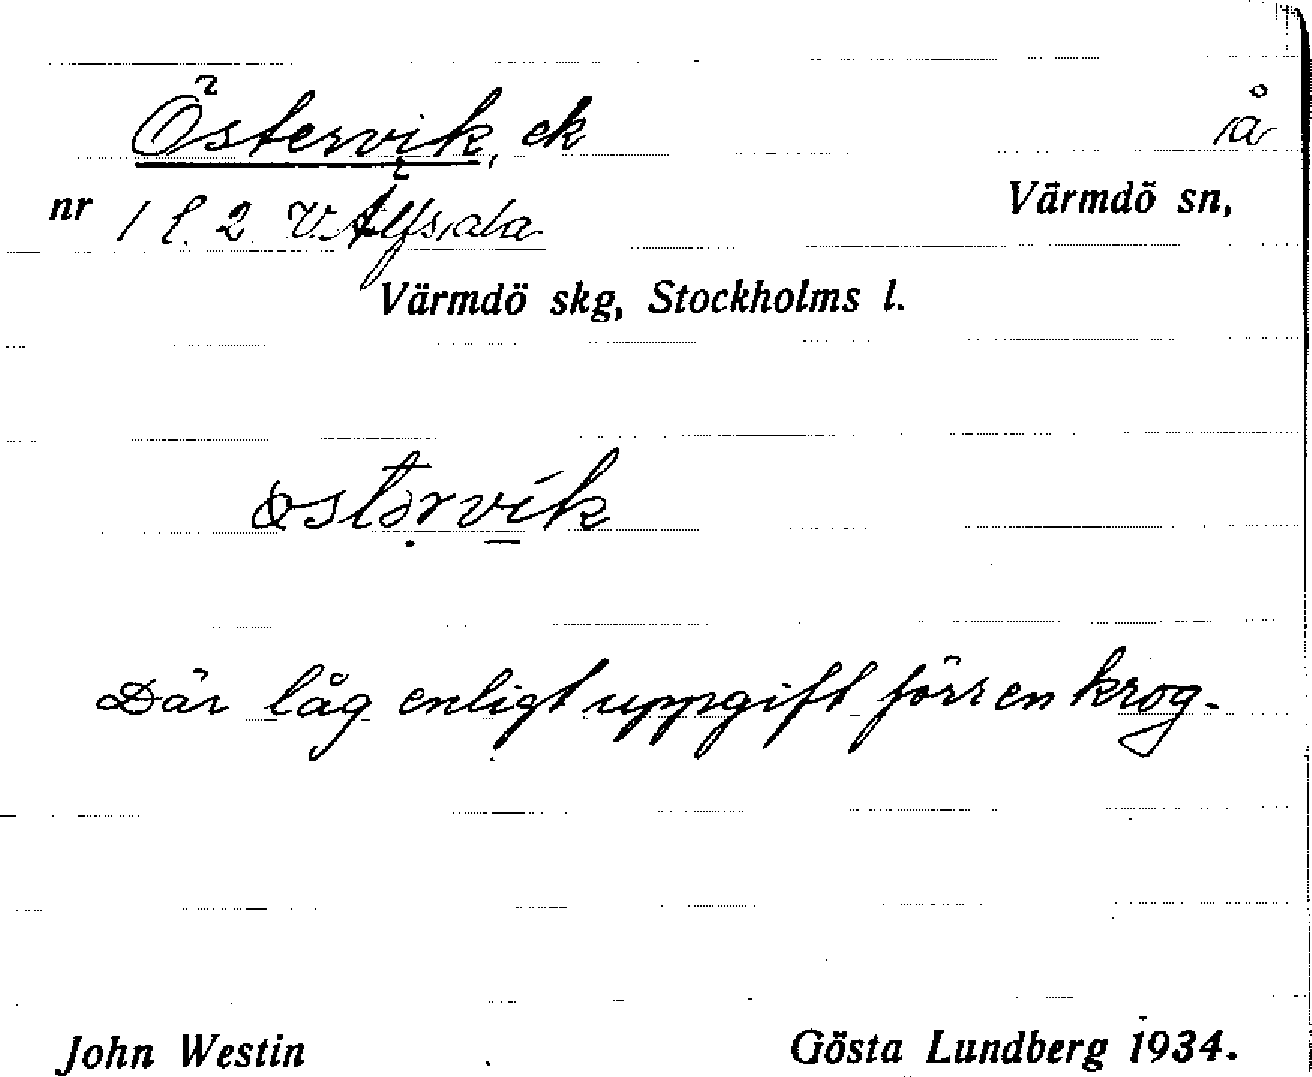 Östervik, ek
å
nr 1 l. 2 V. Älfsala
Värmdö sn,
Värmdö skg, Stockholms l.
østərvik
Där låg enligt uppgift förr en krog.
John Westin
Gösta Lundberg 1934.